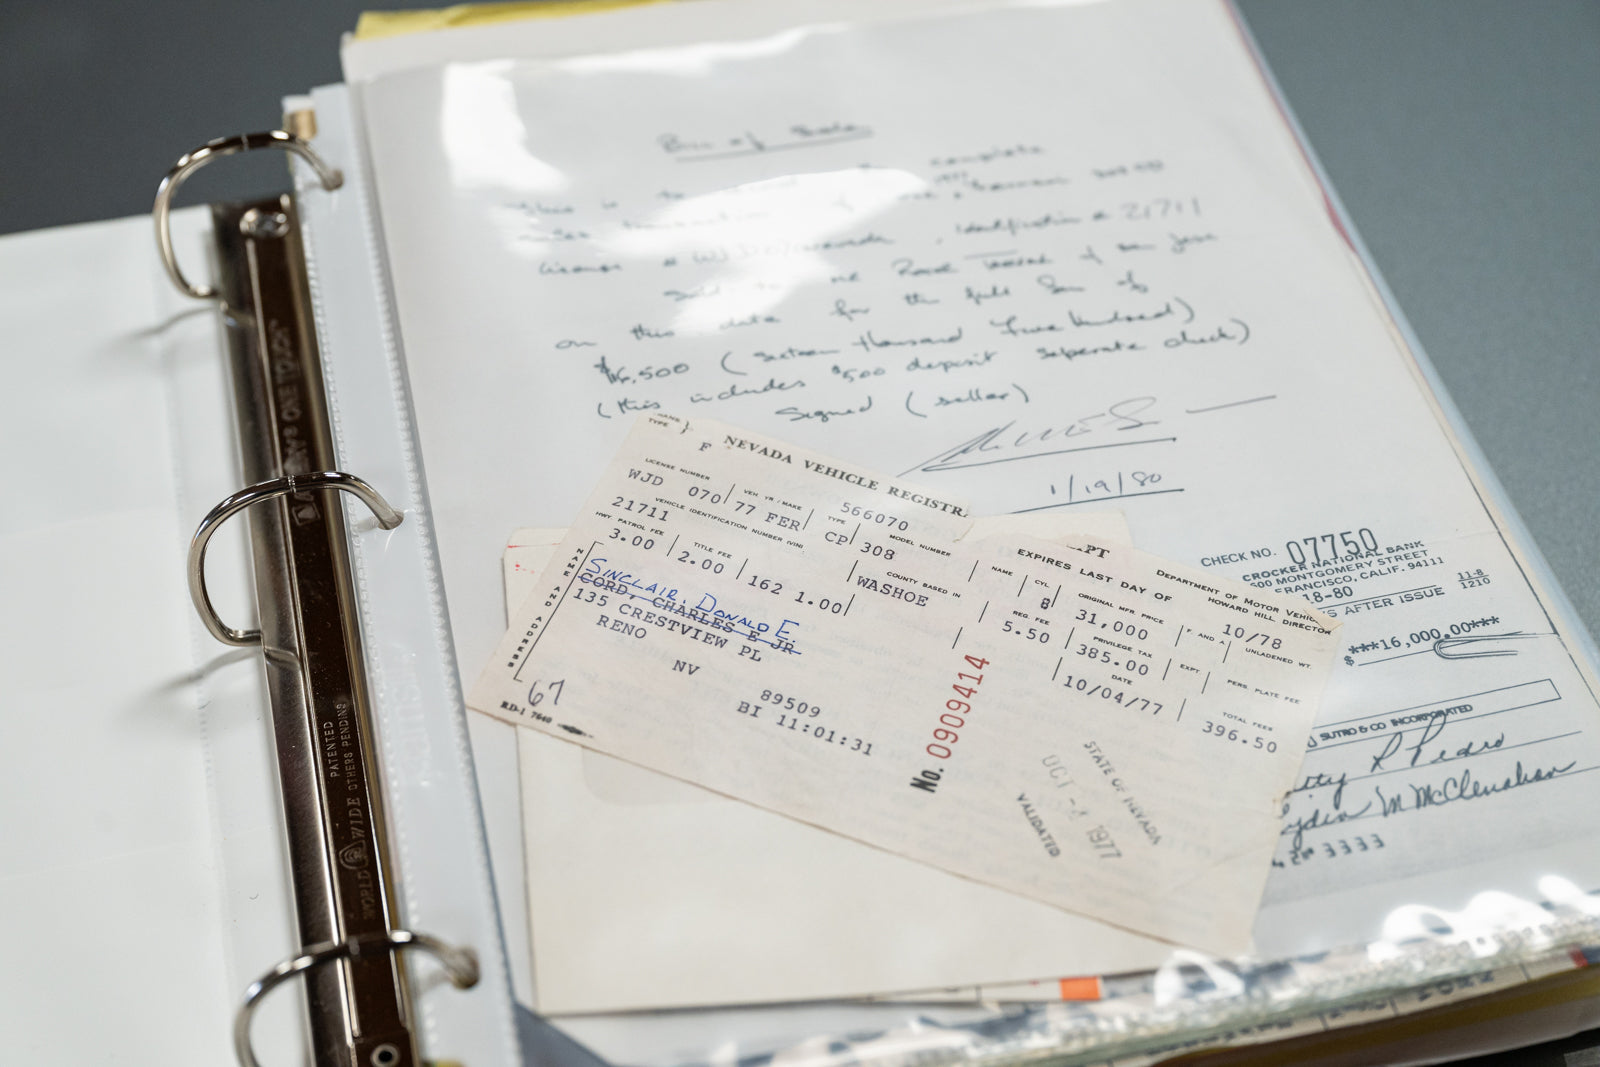 Bill of Sale
This is to complete
sales transaction of 1977 Ferrari 308
License # WJD Nevada, Identification # 21711
Sold to me of San Jose
on this date for the full Sum of
$16,500 (sixteen thousand Five hundred)
(this includes $500 deposit seperate check)
Signed (seller)
1/19/80
NAME TYPE } F NEVADA VEHICLE REGISTRA
PT DEPARTMENT OF MOTOR VEHIC
HOWARD HILL DIRECTOR
LICENSE NUMBER VEH YR / MAKE TYPE MODEL NUMBER NAME CYL EXPIRES LAST DAY OF
WJD 070 77 FER CP 308 8 10/78
566070
VEHICLE IDENTIFICATION NUMBER (VIN) COUNTY BASED IN ORIGINAL MFR PRICE F. AND A UNLADENED WT.
21711 WASHOE 31,000
HWY PATROL FEE TITLE FEE REG. FEE PRIVILEGE TAX EXPT PERS PLATE FEE
3.00 2.00 162 1.00 5.50 385.00
DATE TOTAL FEES
10/04/77 396.50
NAME AND ADDRESS
SINCLAIR, DONALD E.
CORD, CHARLES E JR
135 CRESTVIEW PL
RENO NV
89509
BI 11:01:31
67
RD-1 7640
No. 0909414
STATE OF NEVADA
OCT -4 1977
VALIDATED
CHECK NO. 07750
CROCKER NATIONAL BANK
600 MONTGOMERY STREET
FRANCISCO, CALIF. 94111
11-8
1210
18-80
S AFTER ISSUE
$ ***16,000.00***
SUTRO & CO INCORPORATED
R Pedro
M McClenahan
3333
AVERY® ONE TOUCH™
PATENTED
WORLD WIDE OTHERS PENDING